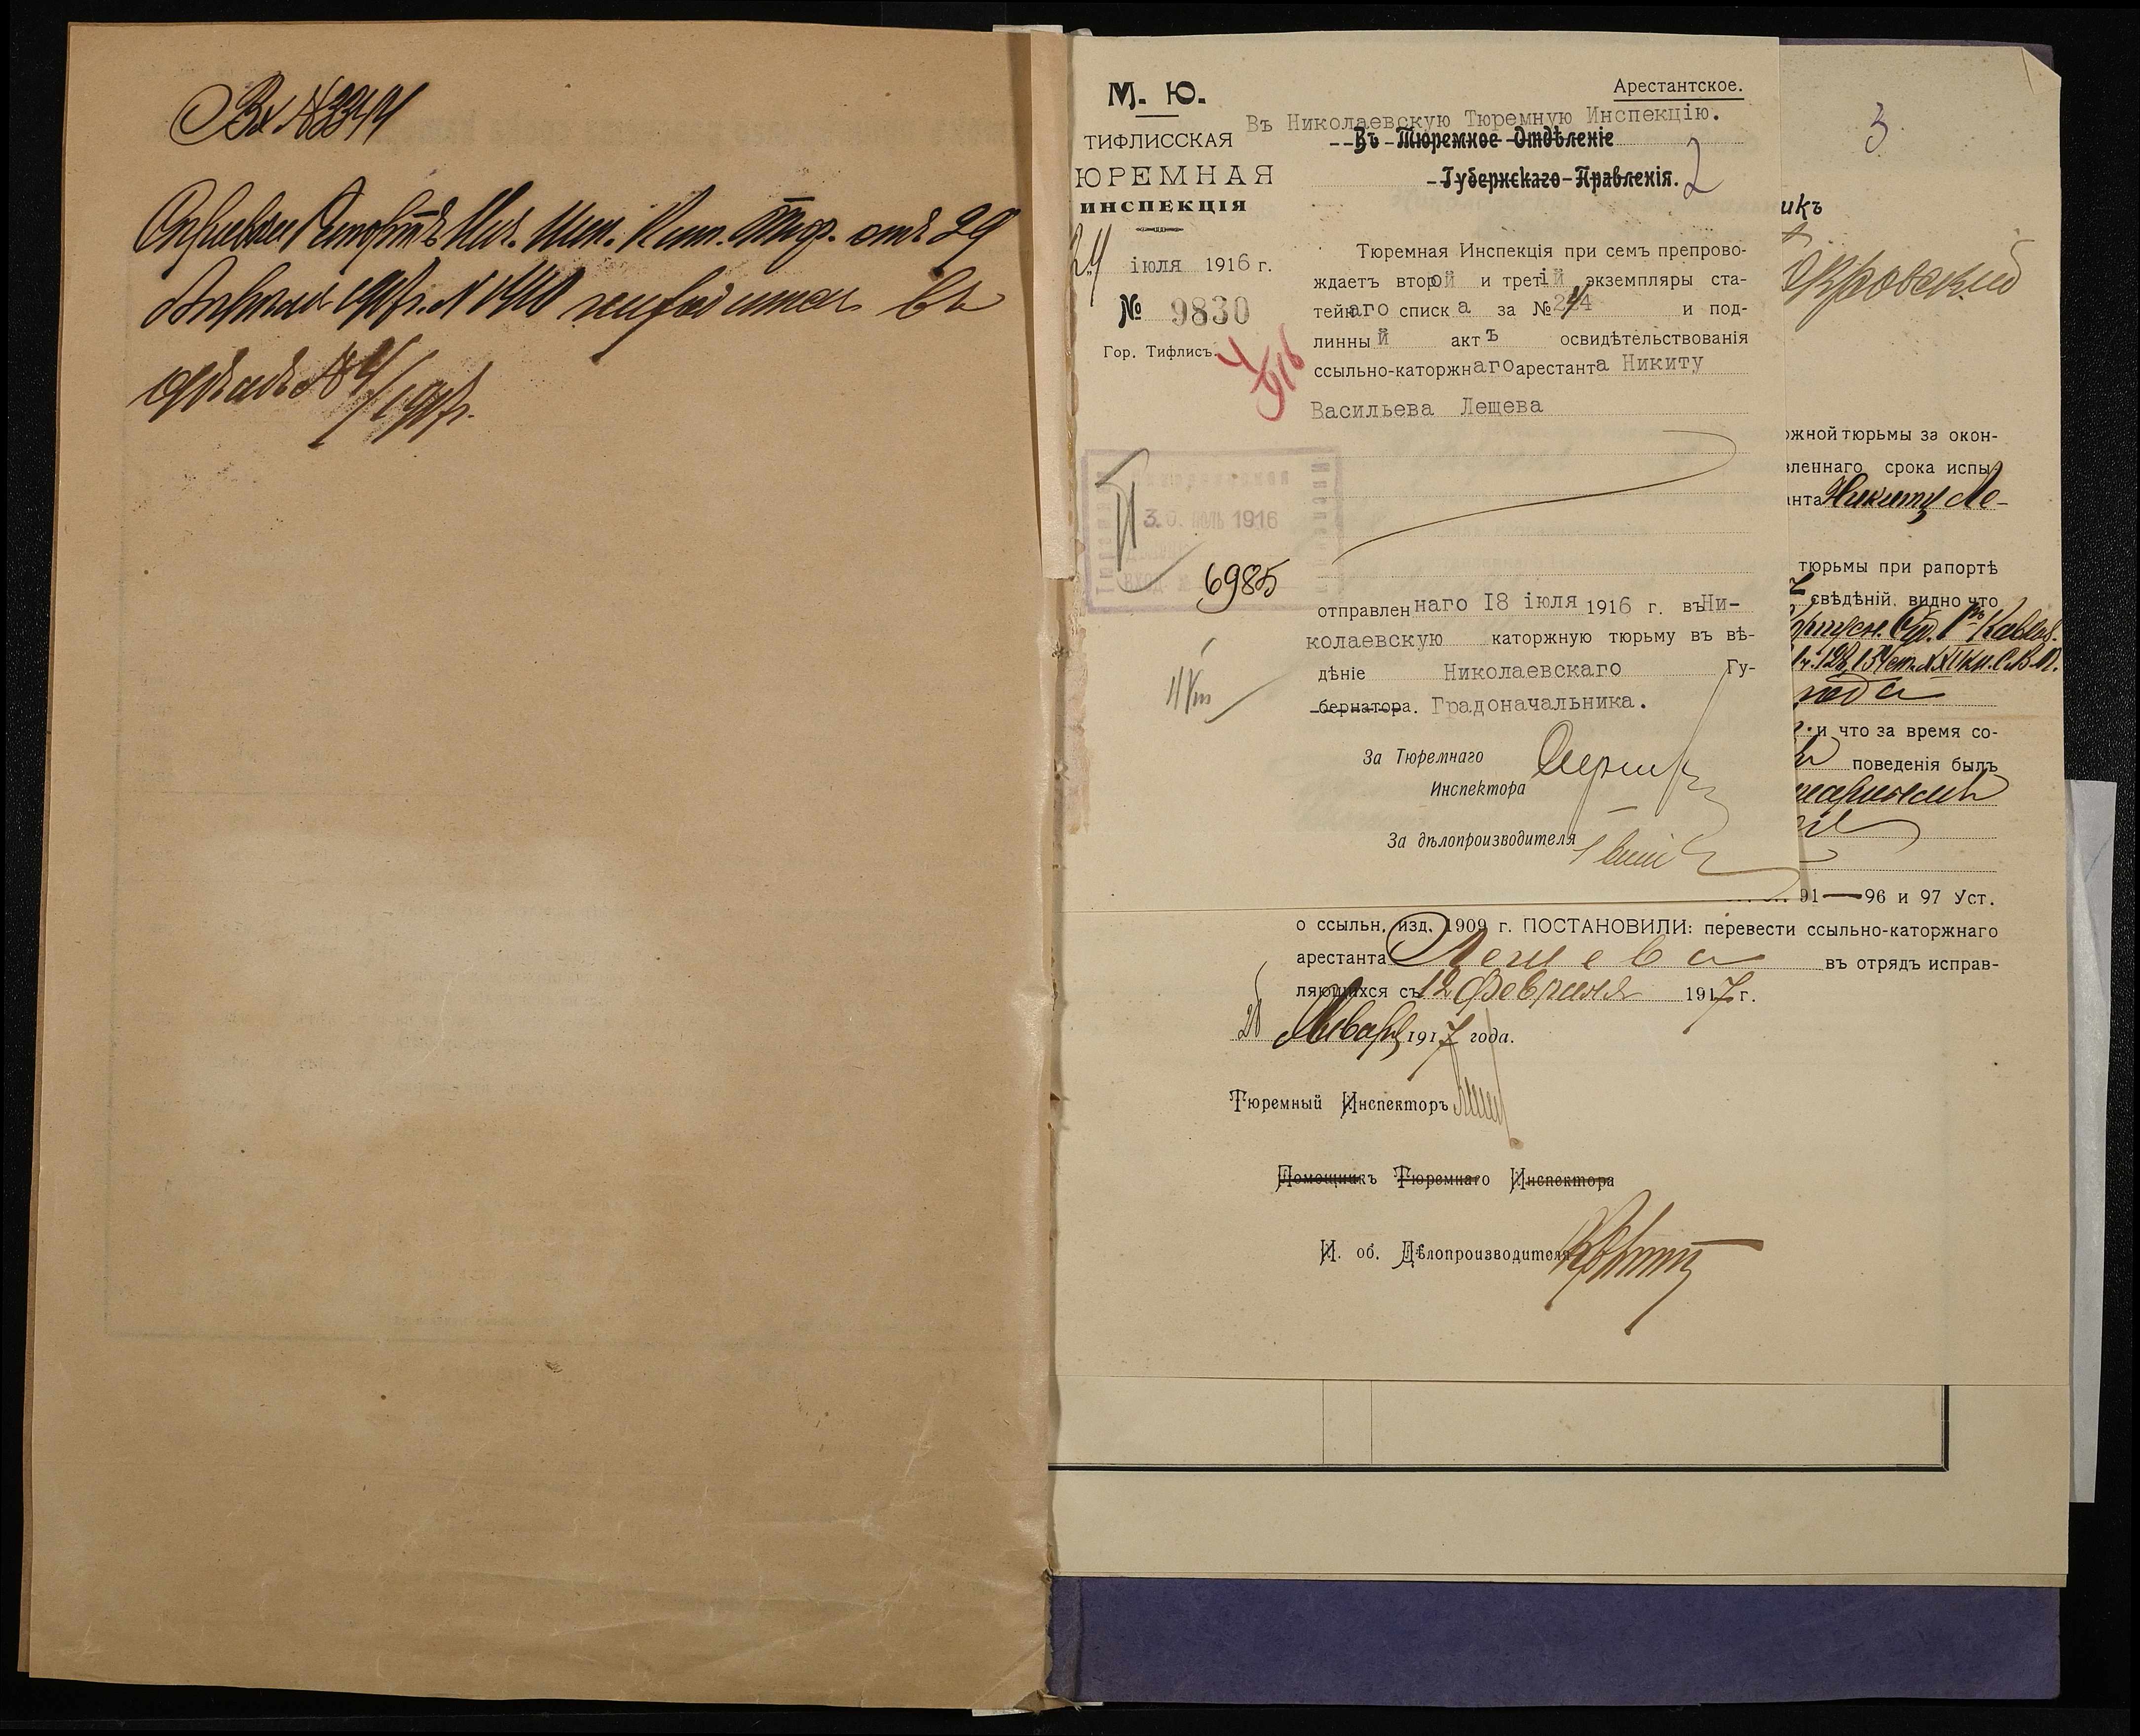 Вх №3344
отъ 29
Апрѣля 1917г. № находится въ
дѣлѣ № 4/1917г.
М. Ю.
ТИФЛИССКАЯ
ЮРЕМНАЯ
ИНСПЕКЦІЯ
24 іюля 1916 г.
№ 9830
Гор. Тифлисъ.
4/916
30 ІЮЛЬ 1916
6985
Арестантское.
Въ Николаевскую Тюремную Инспекцію.
Въ Тюремное Отдѣленіе
Губернскаго Правленія.
2
Тюремная Инспекція при семъ препрово-
ждаетъ второй и третій экземпляры ста-
тейнаго списка за № и под-
линный актъ освидѣтельствованія
ссыльно-каторжнаго арестанта Никиту
Васильева Лещева
отправленнаго 18 іюля 1916 г. въ Ни-
колаевскую каторжную тюрьму въ вѣ-
дѣніе Николаевскаго Гу-
бернатора. Градоначальника.
За Тюремнаго
Инспектора
За дѣлопроизводителя
3
икъ
ожной тюрьмы за окон-
вленнаго срока испы-
анта Никиту Ле-
тюрьмы при рапортѣ
свѣдѣній, видно что
Кавказ.
128, 134 ст. XXII кн. С.В.П.
года
и что за время со-
поведенія былъ
91—96 и 97 Уст.
о ссыльн. изд. 1909 г. ПОСТАНОВИЛИ: перевести ссыльно-каторжнаго
арестанта Лещева въ отрядъ исправ-
ляющихся съ 12 февраля 1917 г.
Января 1917 года.
Тюремный Инспекторъ
Помощникъ Тюремнаго Инспектора
И. об. Дѣлопроизводителя